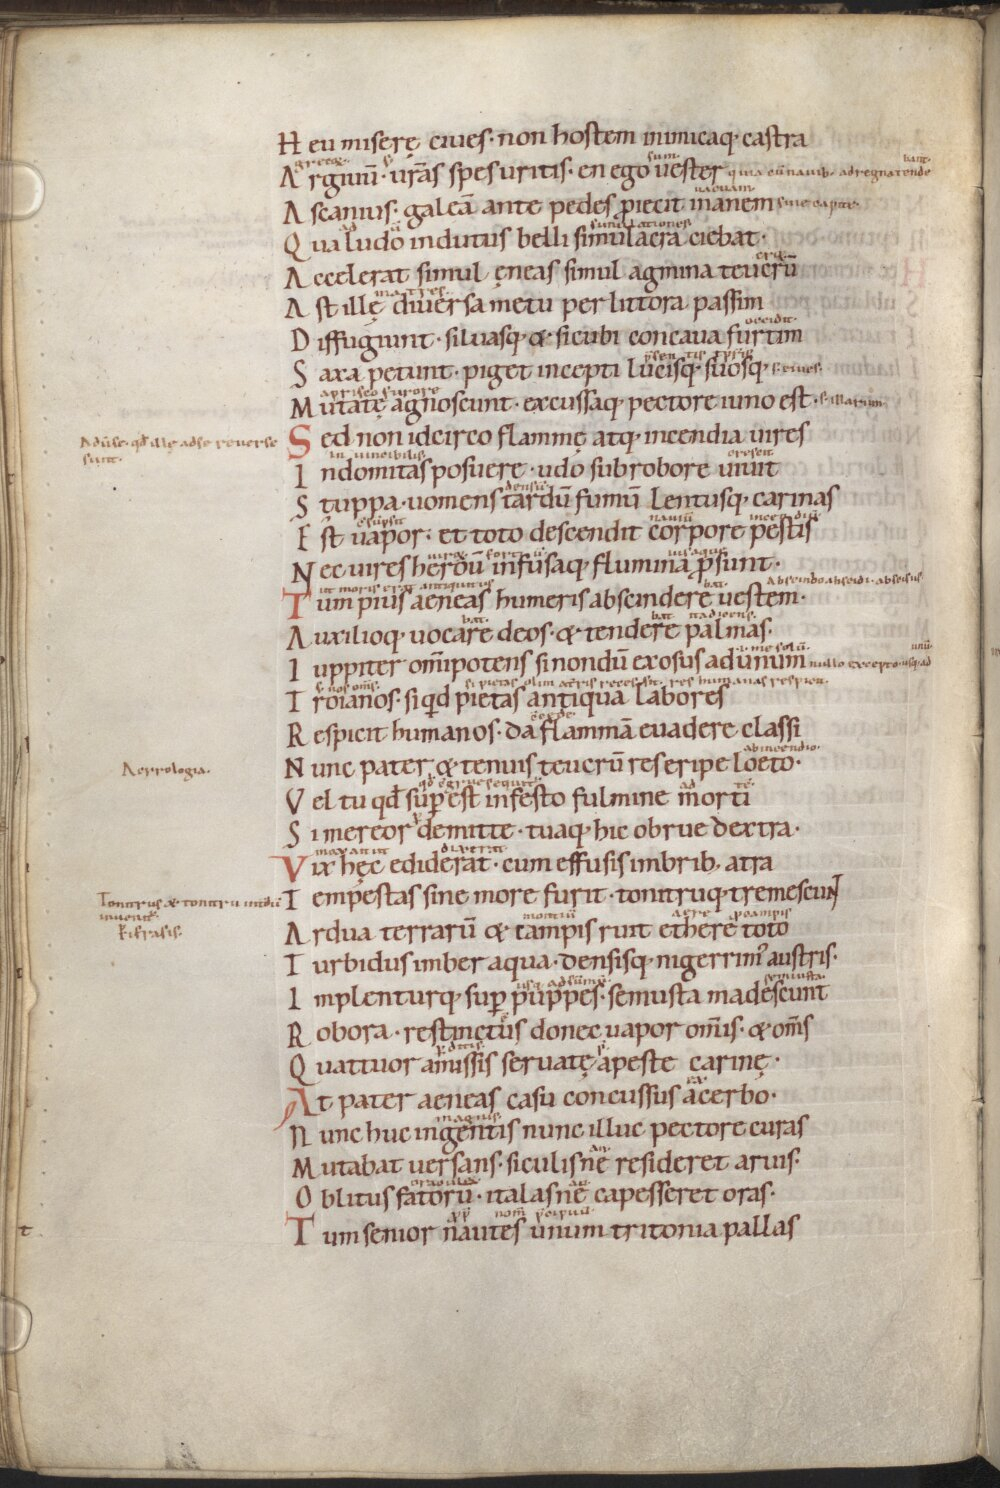 Heu miserę ciues· non hostem inimicaq; castra
grecoꝝ· sum bant·
Argiuū· ur̄as spes uritis· en ego uester quia cū nauib; ad regna tende
uacuam
Ascanius· galeā ante pedes proiecit inanem sine capite·
Qua ludo indutus belli simulacra ciebat·
Accelerat simul ęneas simul agmina teucrū
matres
Ast illę diuersa metu per littora passim
Diffugiunt· siluasq; & sicubi concaua furtim
Saxa petunt· piget incepti lucisq; suosq; s· ciues·
Mutatę agnoscunt· excussaq; pectore iuno est· s· illarum
Aduse· qd̄ illę ad se reuerse
sunt·
Sed non idcirco flammę atq; incendia uires
Indomitas posuere· udo sub robore uiuit
densū
Stuppa· uomens tardū fumū lentusq; carinas
nauiū
Est uapor· et toto descendit corpore pestis
Nec uires heroū infusaq; flumina prosunt·
ut moris erat antiquitus bat· Abscindo abscidi· abscisus
Tum pius aeneas humeris abscindere uestem·
bat· bat
Auxilioq; uocare deos· & tendere palmas·
Iuppiter om̄ipotens si nondū exosus ad unum nullo excepto usq; ad
unū
si pietas olim res humanas respicit·
Troianos· siqd pietas antiqua labores
Respicit humanos· da flammā euadere classi
ab incendio·
Aeyrologia·
Nunc pater & tenuis teucrū res eripe loeto·
Vel tu qd̄ sup̄est infesto fulmine morti
Si mereor demitte· tuaq; hic obrue dextra·
dixerat
Vix hęc ediderat· cum effusis imbrib; atra
Tonitrus & tonitru
Tempestas sine more furit· tonitruq; tremescunt
montiū
Ardua terrarū & campis ruit ethere toto
Turbidus imber aqua· densisq; nigerrim' austris·
semiusta·
Implenturq; sup̄ puppes· semusta madescunt
Robora· restinctus donec uapor om̄is· & om̄s
Quattuor amissis seruatę a peste carinę·
At pater aeneas casu concussus acerbo·
magnis
Nunc huc ingentis nunc illuc pectore curas
Mutabat uersans· siculisne resideret aruis·
Oblitus fatorū· italasne capesseret oras·
t
Tum senior nautes unum tritonia pallas